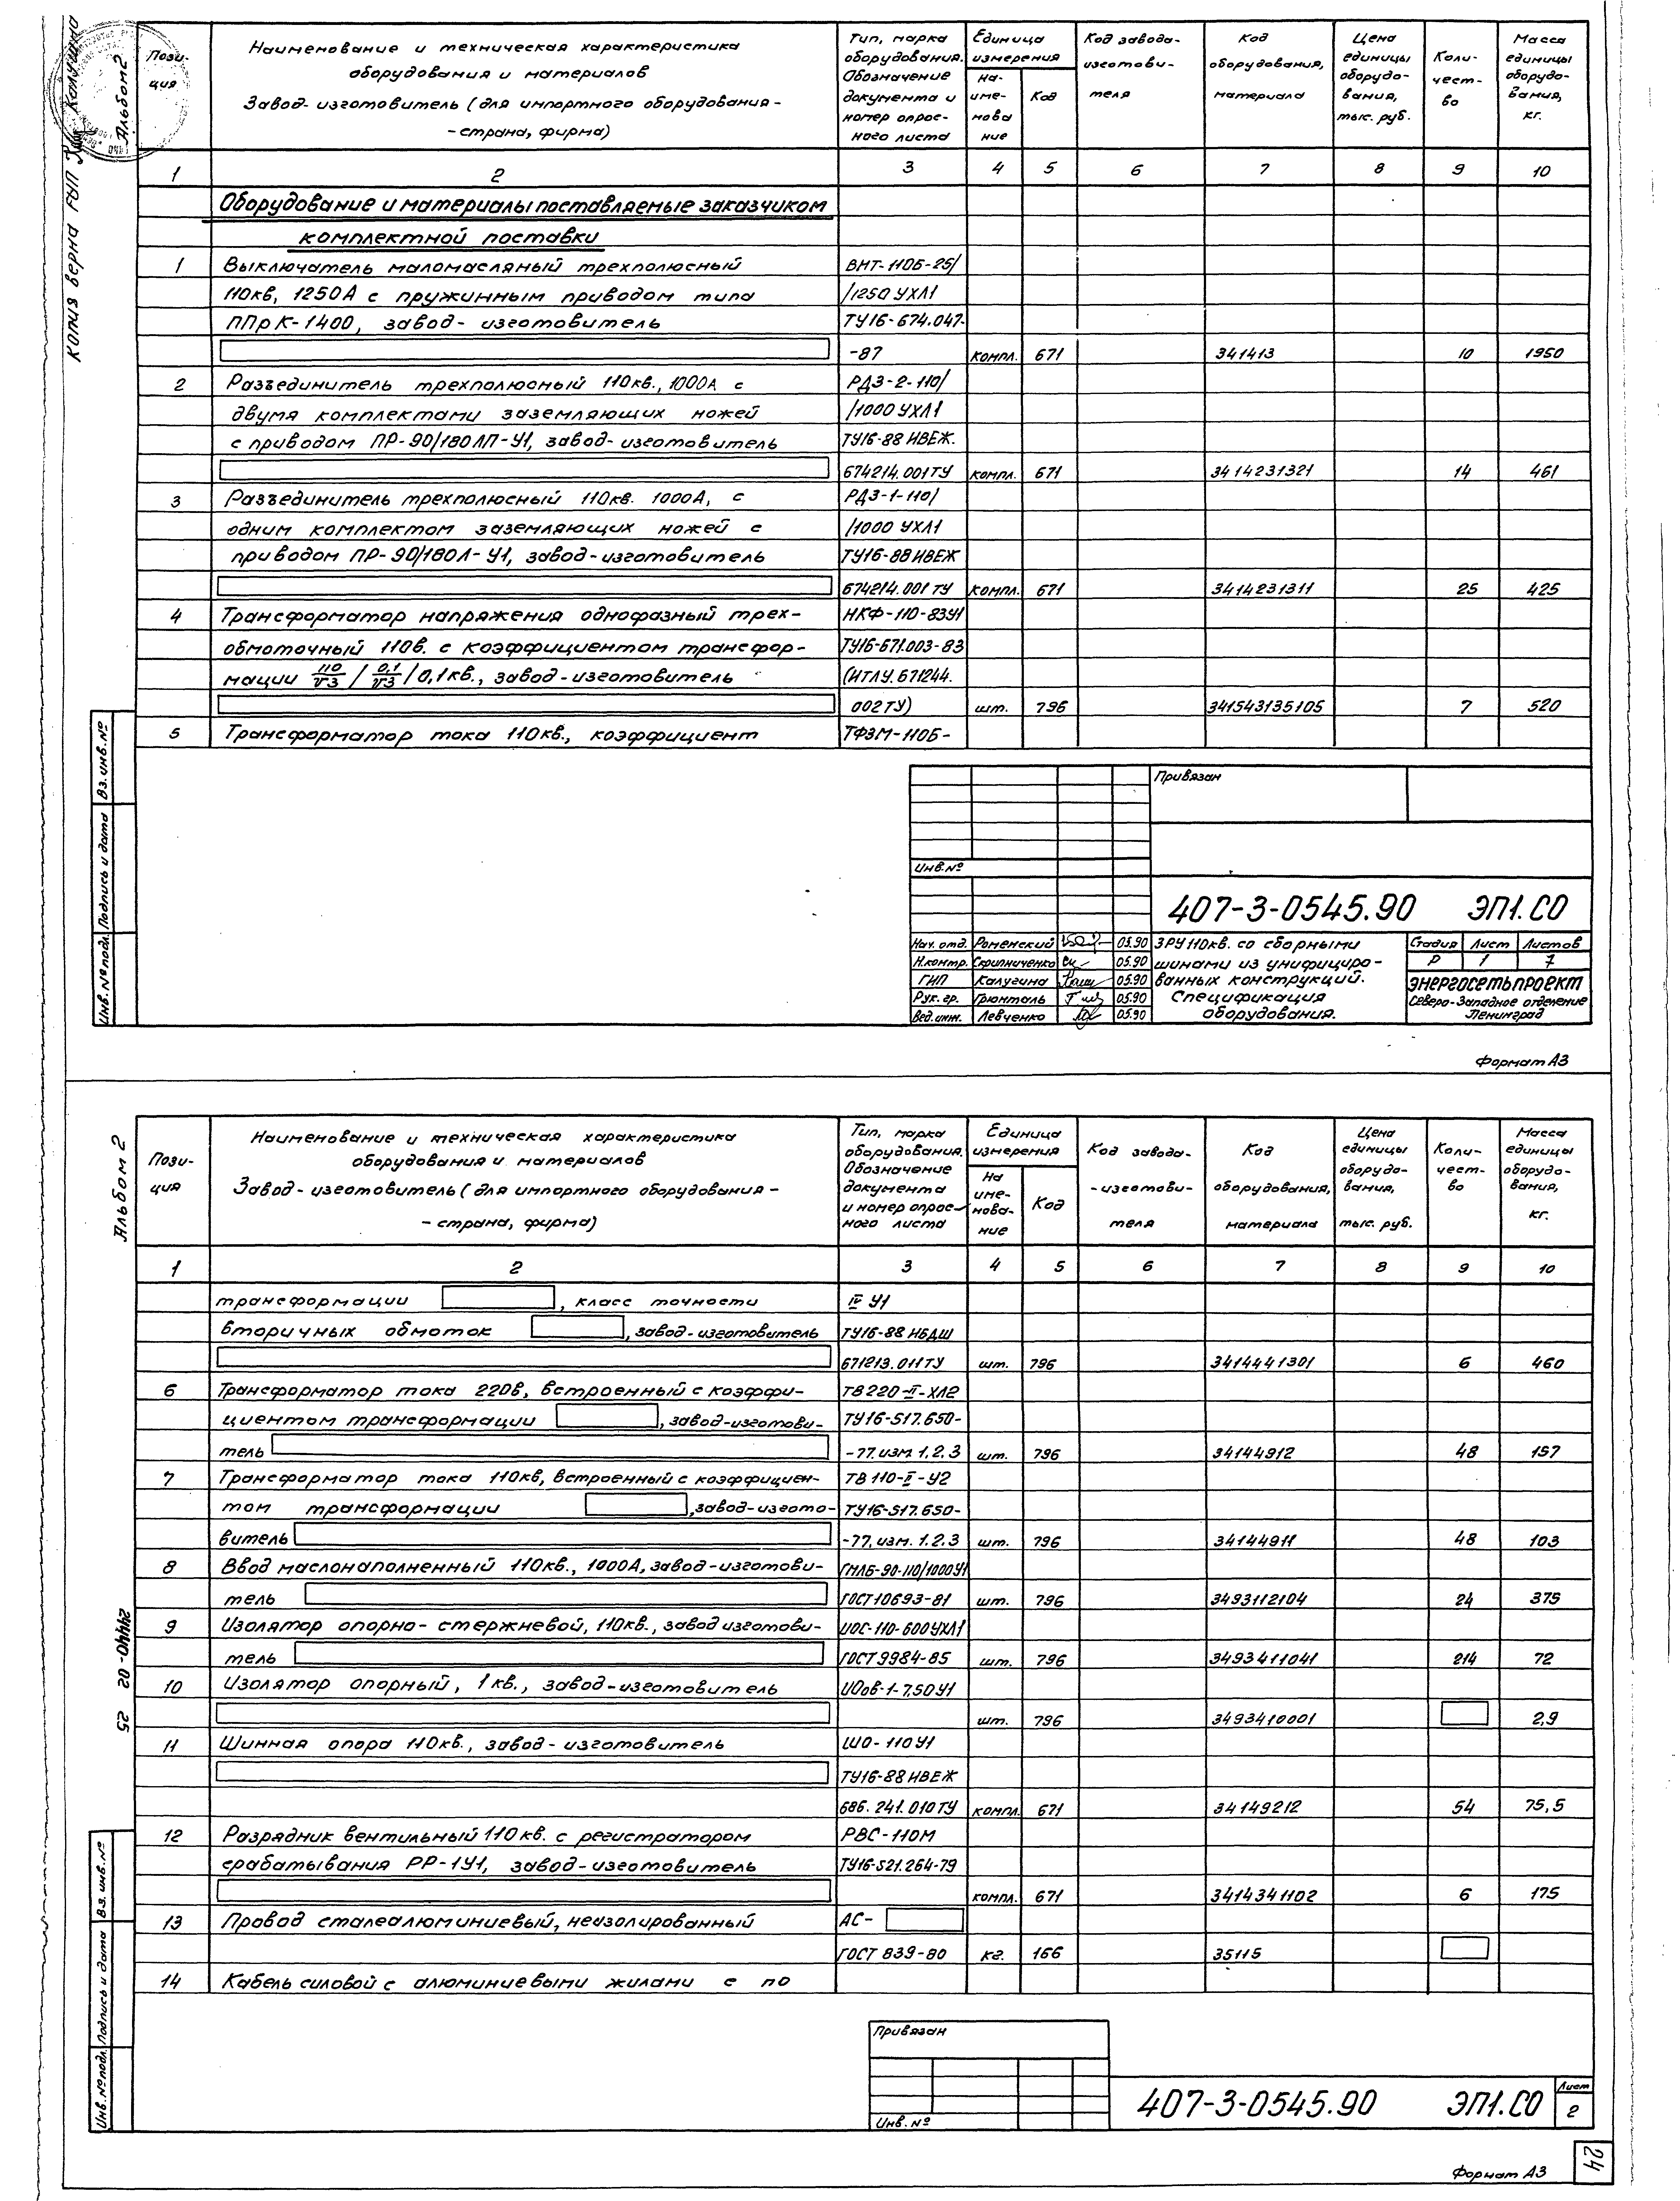 Копия верна ГУП
Альбом 2
Пози-
ция
Наименование и техническая характеристика
оборудования и материалов
Завод-изготовитель (для импортного оборудования-
-страна, фирма)
Тип, марка
оборудования.
Обозначение
документа и
номер опрос-
ного листа
Единица
измерения
На-
име-
нова
ние
Код
Код завода-
изготови-
теля
Код
оборудования,
материала
Цена
единицы
оборудо-
вания,
тыс. руб.
Коли-
чест-
во
Масса
единицы
оборудо-
вания,
кг.
1 2 3 4 5 6 7 8 9 10
Оборудование и материалы поставляемые заказчиком
комплектной поставки
1 Выключатель маломасляный трехполюсный ВМТ-110Б-25/
110кв, 1250А с пружинным приводом типа /1250 УХЛ1
ППрК-1400, завод-изготовитель ТУ16-674.047-
-87 компл. 671 341413 10 1950
2 Разъединитель трехполюсный 110кв., 1000А с РДЗ-2-110/
двумя комплектами заземляющих ножей /1000 УХЛ1
с приводом ПР-90/180ЛП-У1, завод-изготовитель ТУ16-88 ИВЕЖ.
674214.001ТУ компл. 671 3414231321 14 461
3 Разъединитель трехполюсный 110кв. 1000А, с РДЗ-1-110/
одним комплектом заземляющих ножей с /1000 УХЛ1
приводом ПР-90/180Л-У1, завод-изготовитель ТУ16-88 ИВЕЖ
674214.001 ТУ компл. 671 3414231311 25 425
4 Трансформатор напряжения однофазный трех- НКФ-110-83У1
обмоточный 110в. с коэффициентом трансфор- ТУ16-671.003-83
мации 110/√3 / 0,1/√3 / 0,1кв., завод-изготовитель (ИТЛУ.671244.
002ТУ) шт. 796 341543135105 7 520
5 Трансформатор тока 110кв., коэффициент ТФЗМ-110Б-
Инв.№ подл. Подпись и дата Вз. инв.№
Привязан
Инв.№
407-3-0545.90 ЭП1.СО
Нач. отд. Роменский 05.90
Н.контр. Скрипниченко 05.90
ГИП Калугина 05.90
Рук. гр. Грюнталь 05.90
Вед.инж. Левченко 05.90
ЗРУ 110кв. со сборными
шинами из унифициро-
ванных конструкций.
Спецификация
оборудования.
Стадия Лист Листов
Р 1 7
Энергосетьпроект
Северо-Западное отделение
Ленинград
Формат А3
Альбом 2
Пози-
ция
Наименование и техническая характеристика
оборудования и материалов
Завод-изготовитель (для импортного оборудования-
-страна, фирма)
Тип, марка
оборудования.
Обозначение
документа
и номер опрос-
ного листа
Единица
измерения
На
име-
нова-
ние
Код
Код завода-
-изготови-
теля
Код
оборудования,
материала
Цена
единицы
оборудо-
вания,
тыс. руб.
Коли-
чест-
во
Масса
единицы
оборудо-
вания,
кг.
1 2 3 4 5 6 7 8 9 10
трансформации , класс точности IV У1
вторичных обмоток , завод-изготовитель ТУ16-88 ИБДШ
671213.011ТУ шт. 796 3414441301 6 460
6 Трансформатор тока 220в, встроенный с коэффи- ТВ220-II-ХЛ2
циентом трансформации , завод-изготови- ТУ16-517.650-
тель -77. изм 1,2,3 шт. 796 34144912 48 157
7 Трансформатор тока 110кв, встроенный с коэффициен- ТВ 110-II-У2
том трансформации , завод-изгото- ТУ16-517.650-
витель -77, изм. 1.2.3 шт. 796 34144911 48 103
8 Ввод маслонаполненный 110кв., 1000А, завод-изготови- ГМЛБ-90-110/1000У1
тель ГОСТ10693-81 шт. 796 3493112104 24 375
9 Изолятор опорно-стержневой, 110кв., завод изготови- ИОС-110-600УХЛ1
тель ГОСТ 9984-85 шт. 796 3493411041 214 72
10 Изолятор опорный, 1кв., завод-изготовитель ИОоВ-1-7,50У1
шт. 796 3493410001 2,9
11 Шинная опора 110кв., завод-изготовитель ШО-110У1
ТУ16-88 ИВЕЖ
686.241.010ТУ компл. 671 34149212 54 75,5
12 Разрядник вентильный 110кв. с регистратором РВС-110М
срабатывания РР-1У1, завод-изготовитель ТУ16-521.264-79
компл. 671 3414341102 6 175
13 Провод сталеалюминиевый, неизолированный АС-
ГОСТ 839-80 кг. 166 35115
14 Кабель силовой с алюминиевыми жилами с по
24440-02 25
Инв.№ подл. Подпись и дата Вз. инв.№
Привязан
Инв.№
407-3-0545.90 ЭП1.СО
Лист
2
Формат А3
24